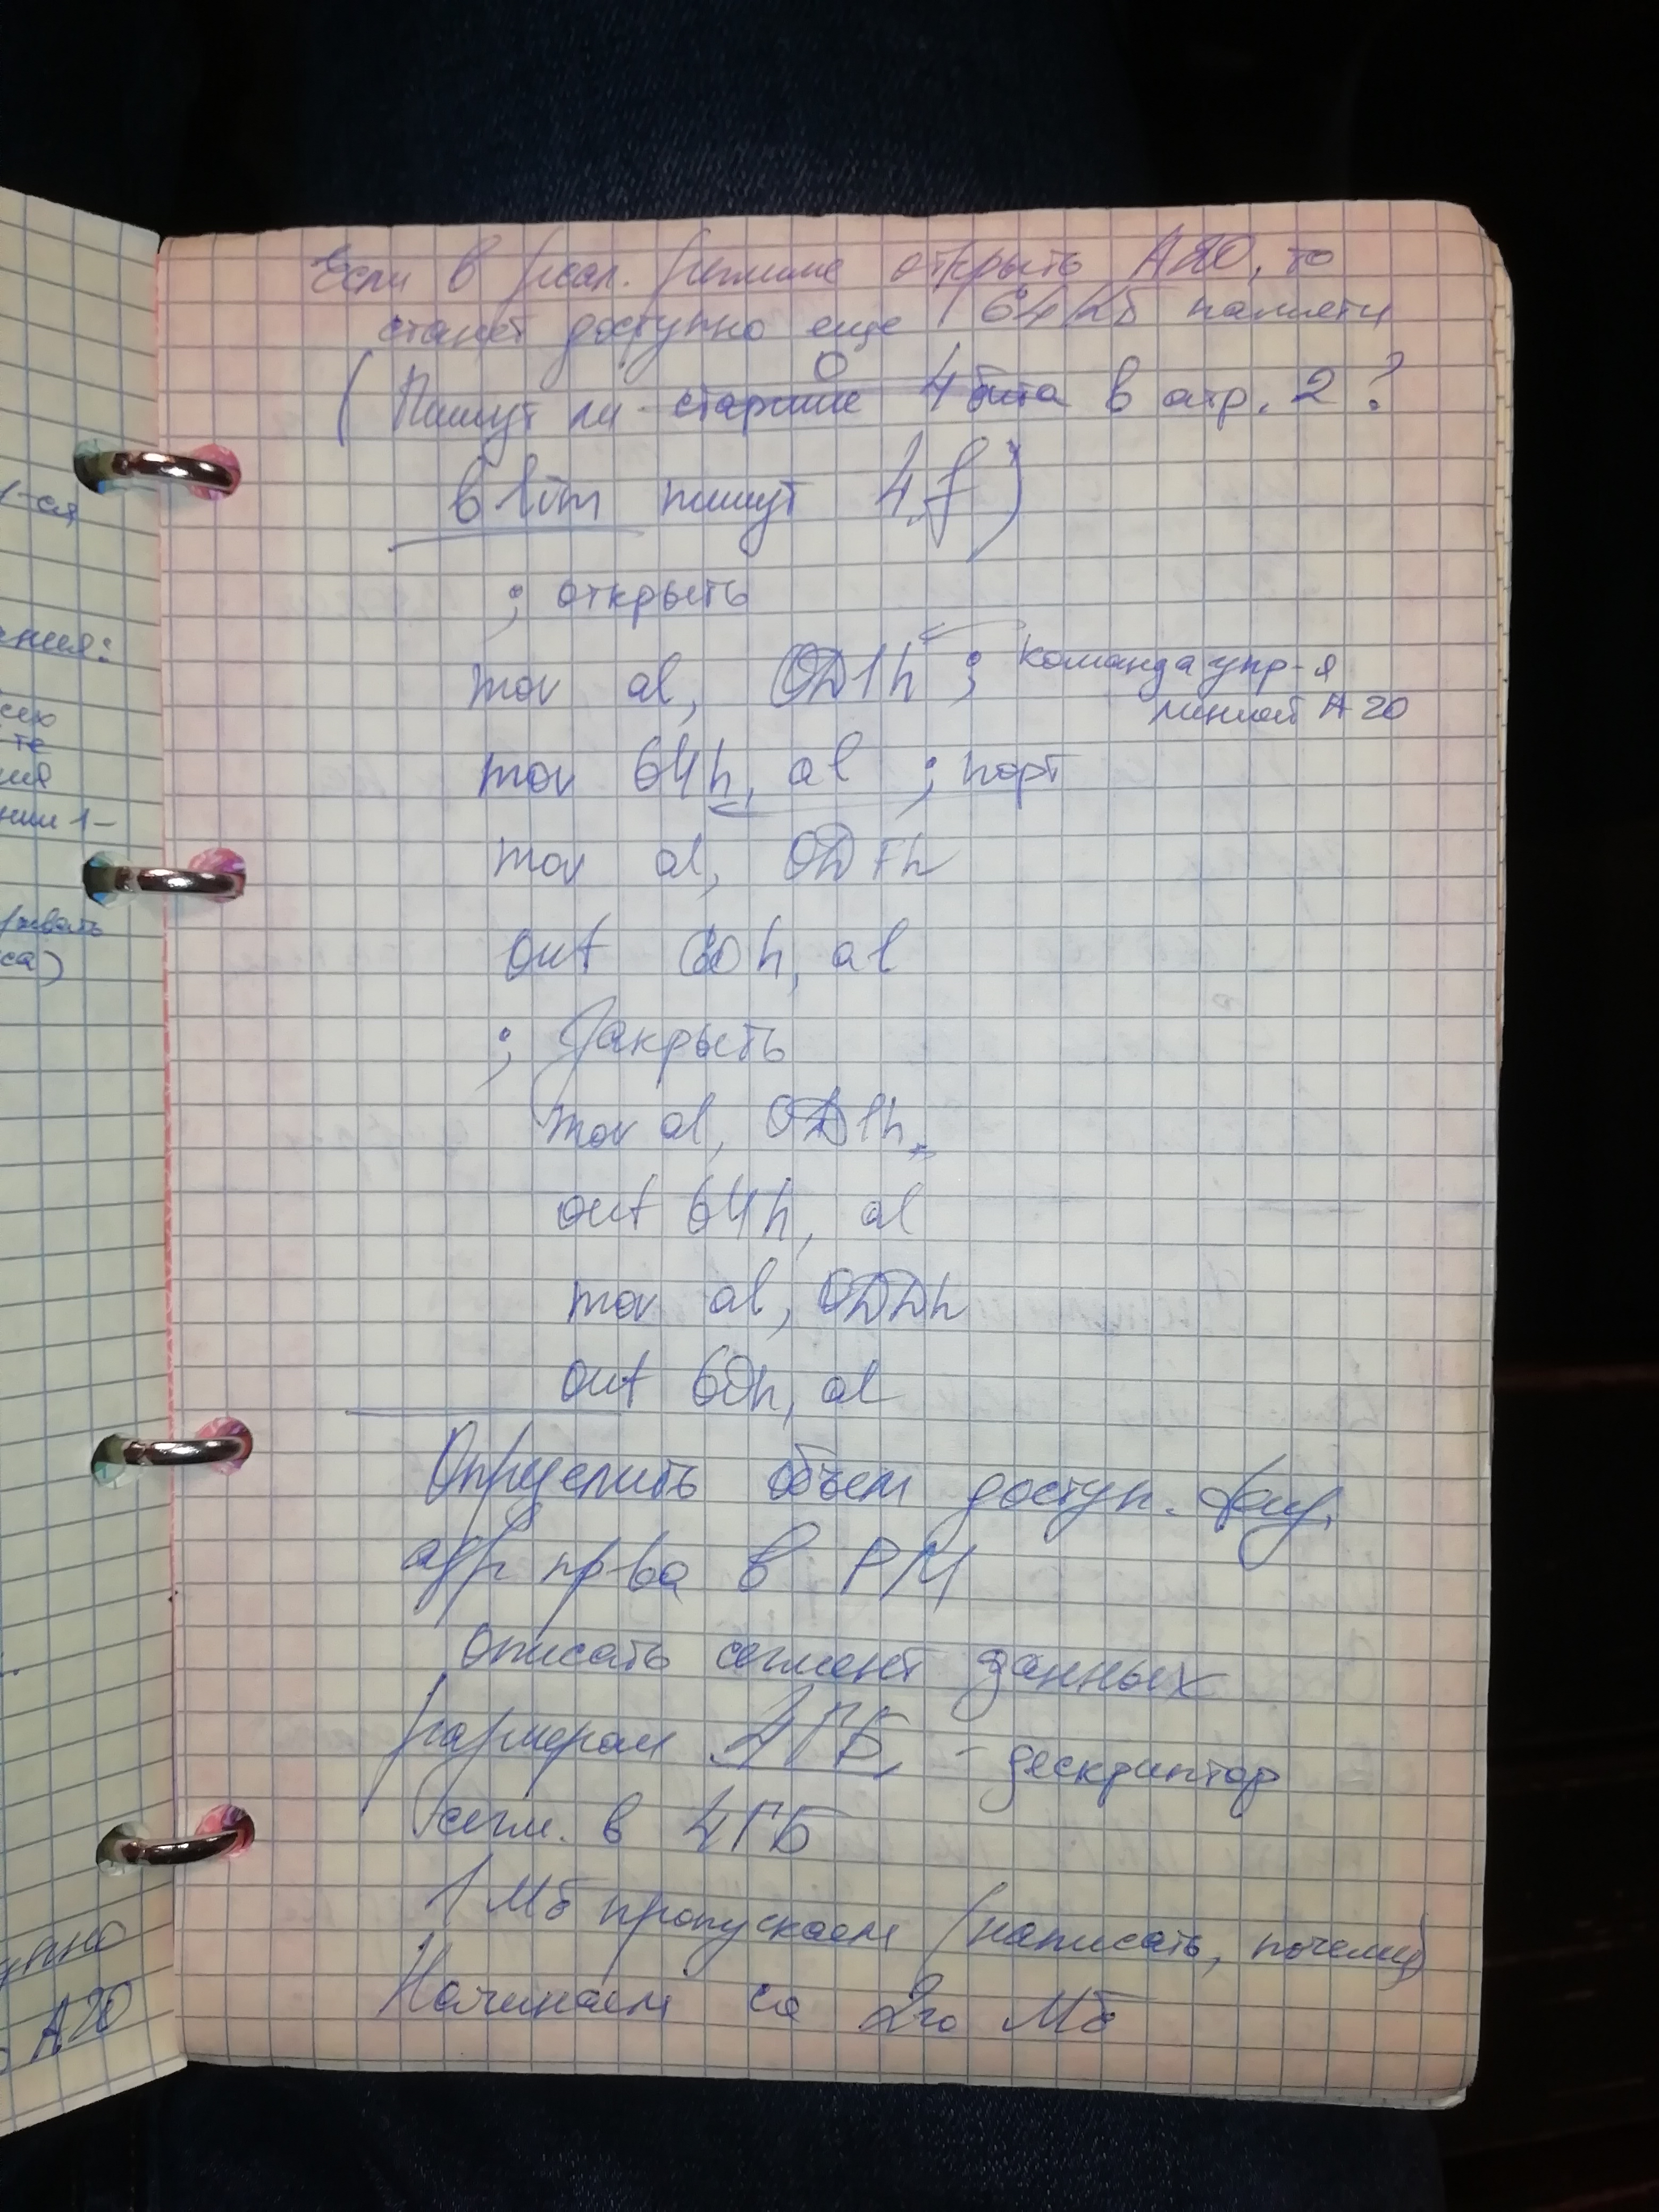 1-ся
ния:
сею
-те
ния
нии 1-
ивать
са)
упно
А20
Если в реал. режиме открыть А20, то
станет доступно еще 64 Кб памяти
0
(Пишут ли старшие 4 бита в атр. 2 ?
в lim пишут 4 f)
; открыть
mov al, 0D1h ; команда упр-я
линией А20
mov 64h, al ; порт
mov al, 0DFh
out 60h, al
; Закрыть
mov al, 0D1h
out 64h, al
mov al, 0DDh
out 60h, al
Определить объем доступ. физ.
адр пр-ва в РМ
Описать сегмент данных
размером 4ГБ, - дескриптор
сегм. в 4ГБ
1 Мб пропускаем (написать, почему)
Начинаем со 2го Мб